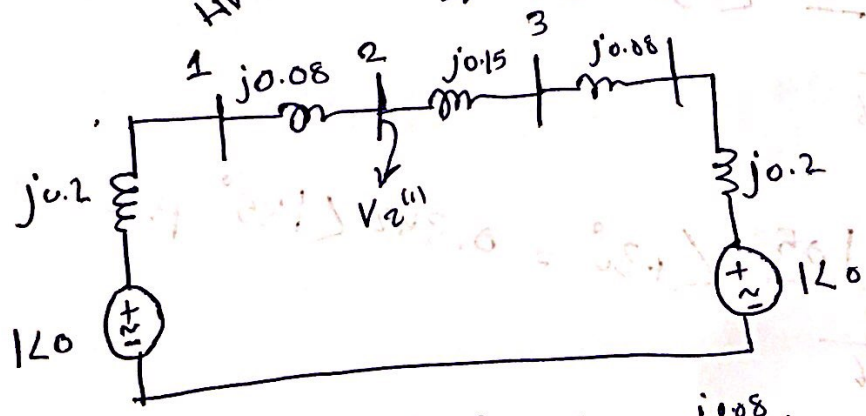 1 j0.08 2 j0.15 3 j0.08
j0.2
V₂⁽¹⁾
j0.2
1∠0
1∠0
j0.08